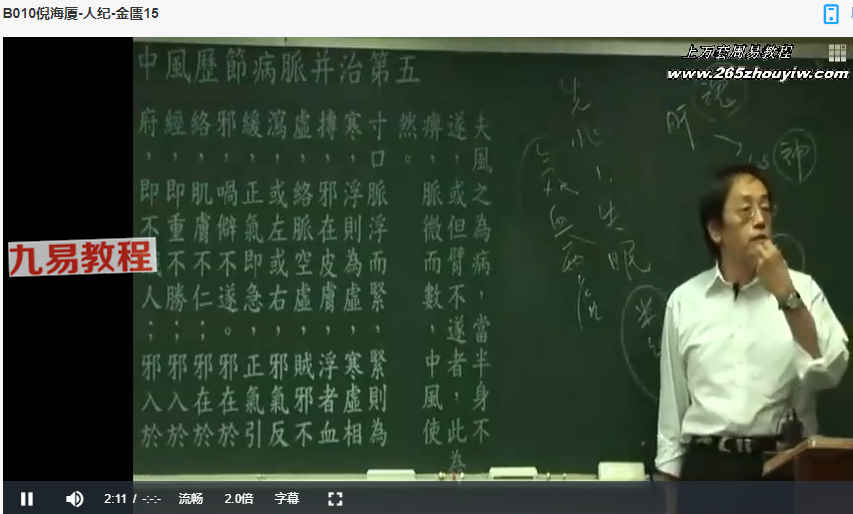 B010倪海厦-人纪-金匮15
上万套周易教程
www.265zhouyiw.com
中風歷節病脈并治第五
夫風之為病，當半身不
遂，或但臂不遂者，此為
痹，脈微而數，中風使
然。
寸口脈浮而緊，緊則為
寒，浮則為虛，寒虛相
搏，邪在皮膚，浮者血
虛，絡脈空虛，賊邪不
瀉，或左或右，邪氣反
緩，正氣即急，正氣引
邪，喎僻不遂。邪在於
絡，肌膚不仁；邪在於
經，即重不勝；邪入於
府，即不人；邪入於
失眠
肝
魂
神
九易教程
2:11 / -:-:- 流畅 2.0倍 字幕